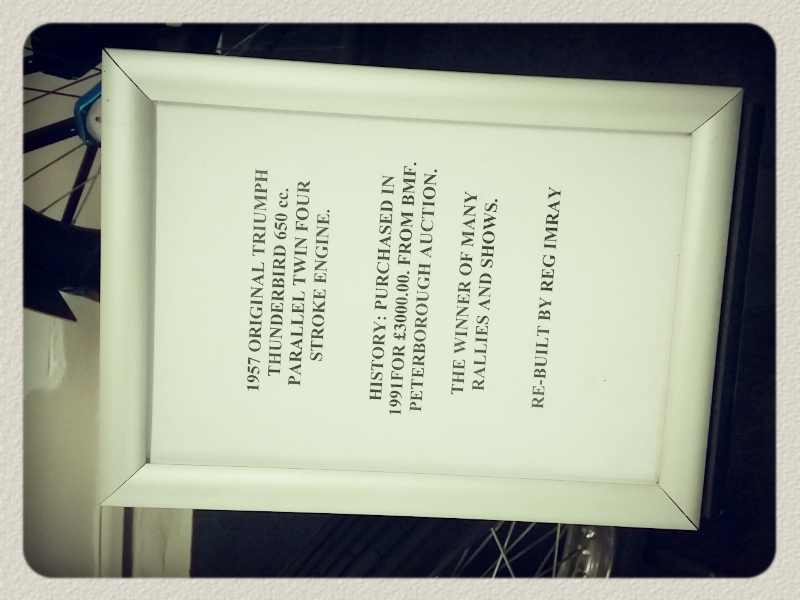 1957 ORIGINAL TRIUMPH
THUNDERBIRD 650 cc.
PARALLEL TWIN FOUR
STROKE ENGINE.
HISTORY: PURCHASED IN
1991FOR £3000.00. FROM BMF.
PETERBOROUGH AUCTION.
THE WINNER OF MANY
RALLIES AND SHOWS.
RE-BUILT BY REG IMRAY